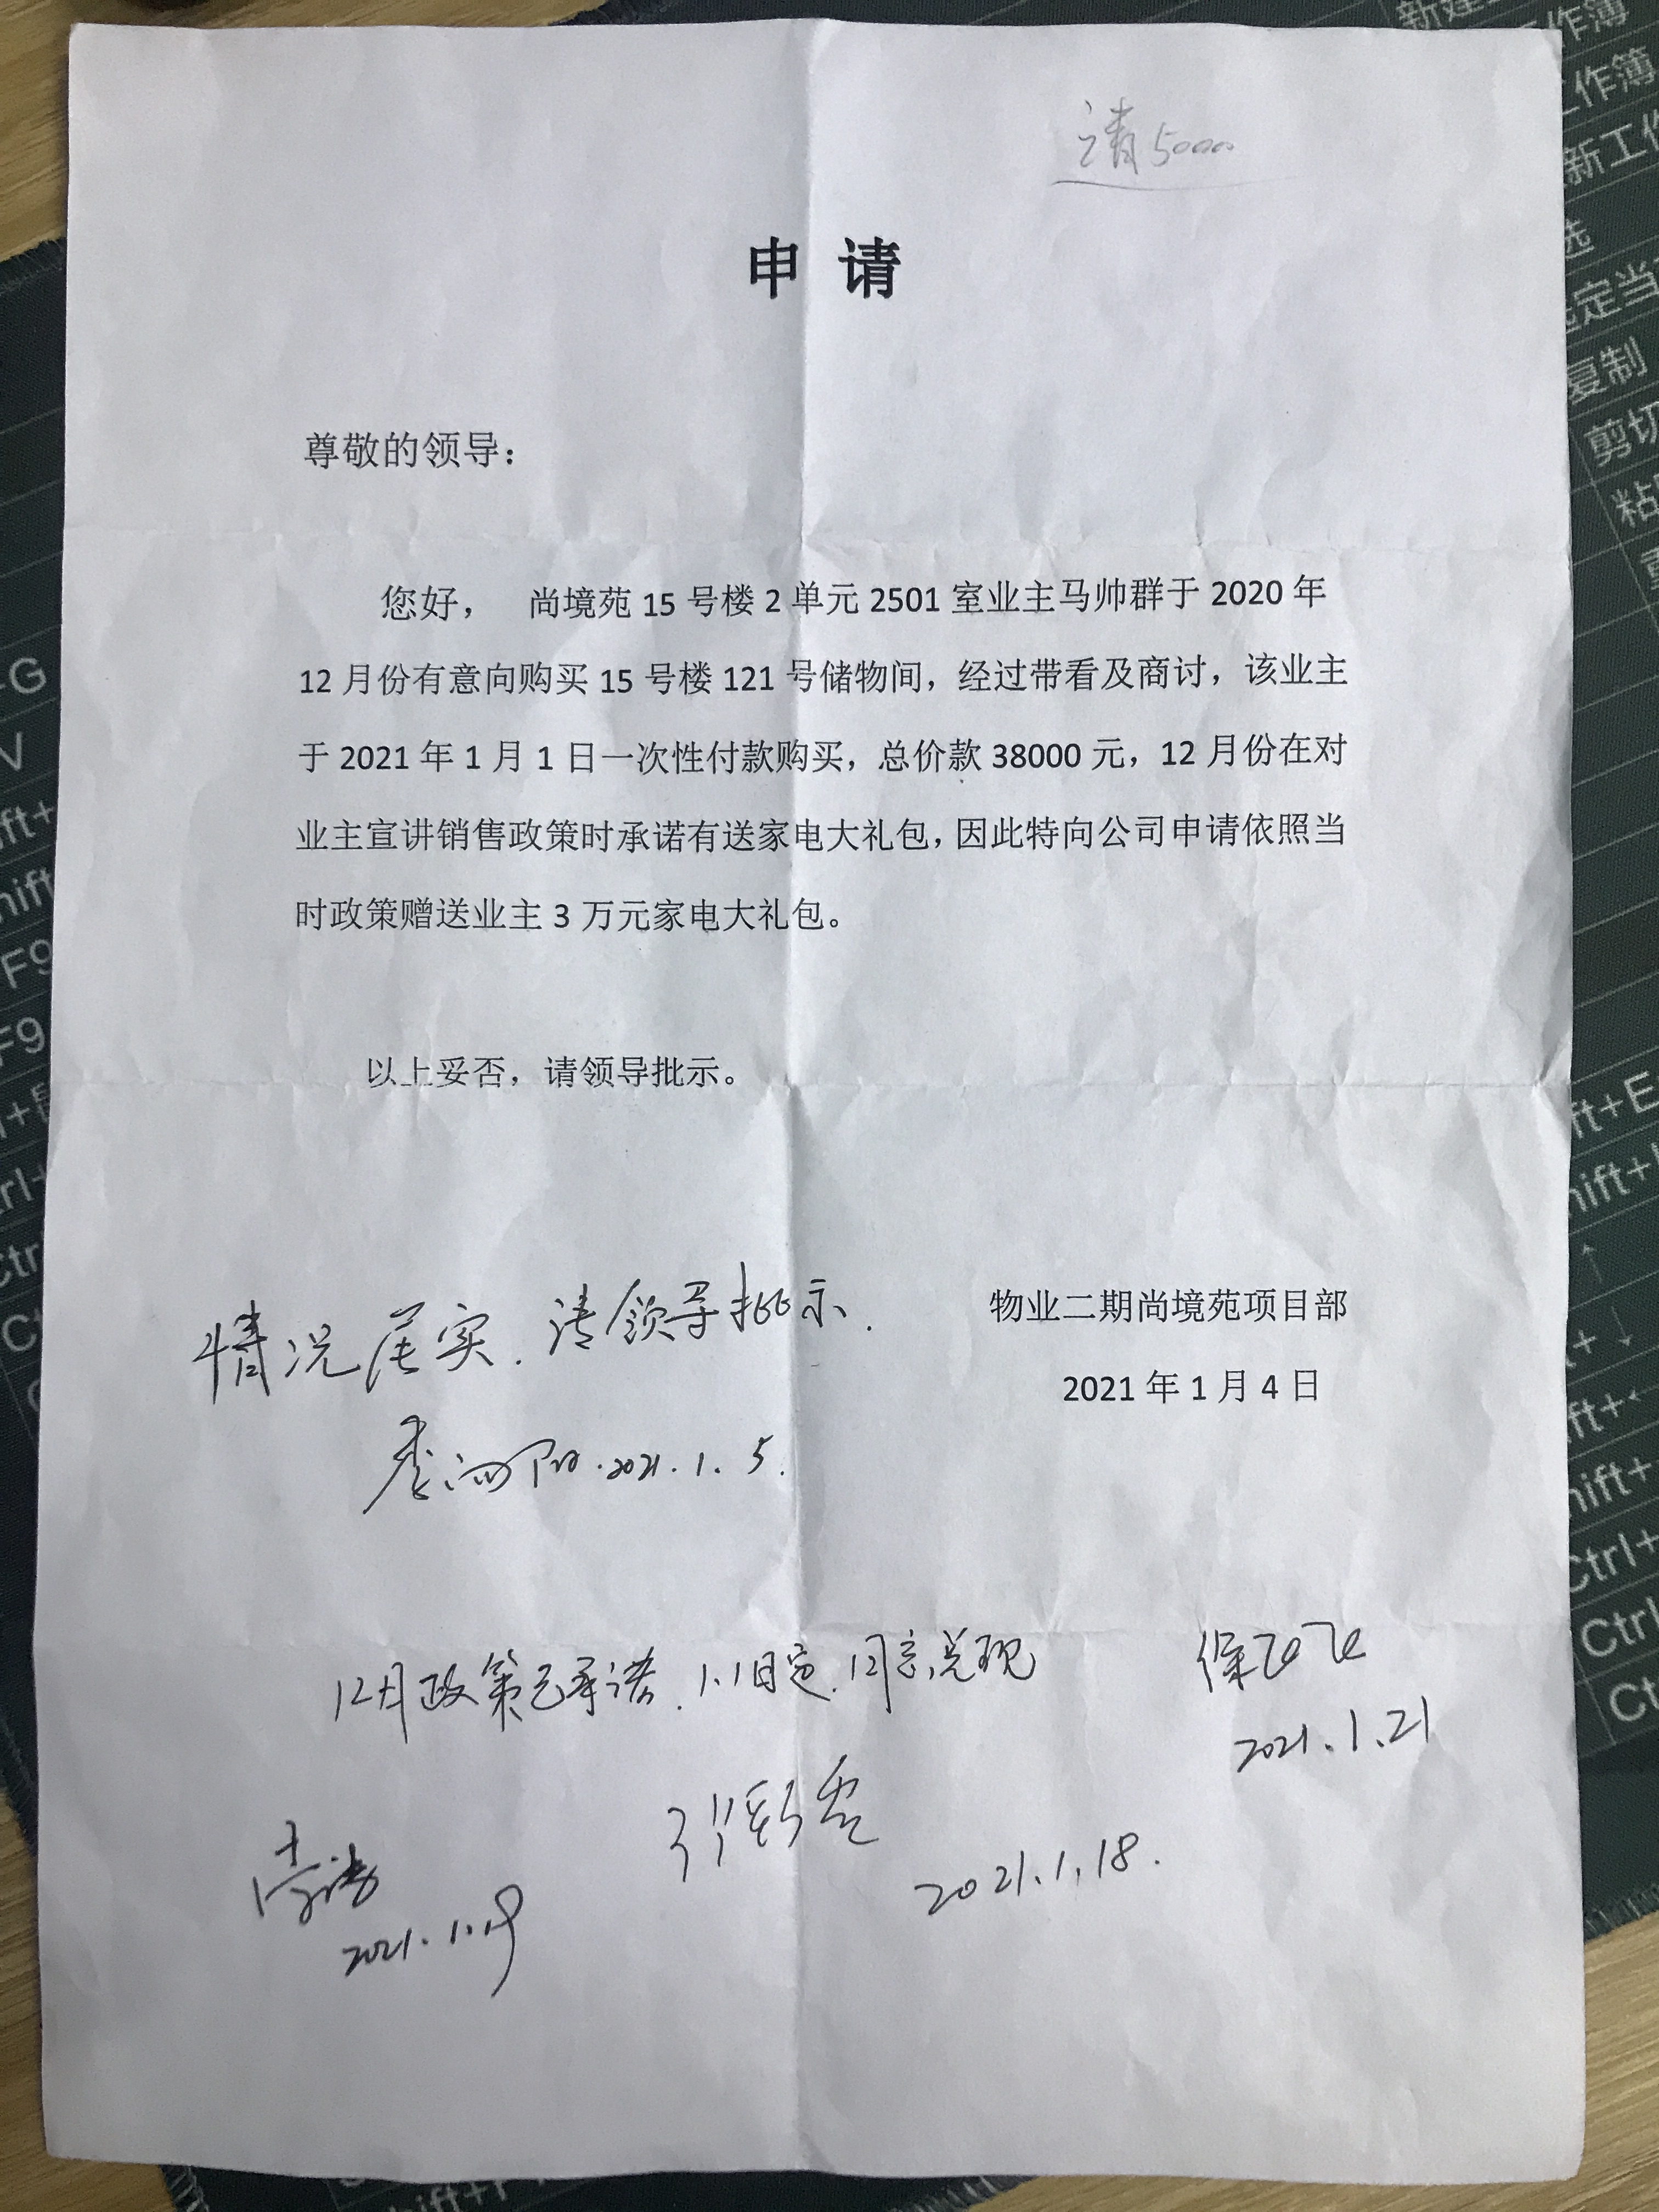 请5000
申 请
尊敬的领导：
您好， 尚境苑 15 号楼 2 单元 2501 室业主马帅群于 2020 年
12 月份有意向购买 15 号楼 121 号储物间，经过带看及商讨，该业主
于 2021 年 1 月 1 日一次性付款购买，总价款 38000 元，12 月份在对
业主宣讲销售政策时承诺有送家电大礼包，因此特向公司申请依照当
时政策赠送业主 3 万元家电大礼包。
以上妥否，请领导批示。
物业二期尚境苑项目部
2021 年 1 月 4 日
情况属实．请领导批示．
2021.1.5.
12月政策已承诺．1.1日定．
兑现
2021.1.21
2021.1.18.
2021.1.19
新建
作簿
工作簿
新工作
选
选定当
复制
剪切
粘
Ctrl+
Ctrl+